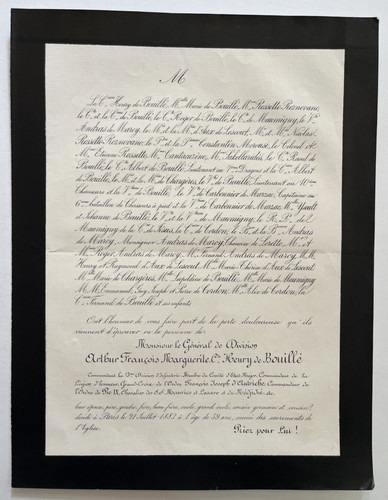 M
La C.tesse Henry de Bouillé, M.lle Marie de Bouillé, M.me Rossetti-Roznovano,
le C.te et la C.tesse de Bouillé, le C.te Roger de Bouillé, le C.te de Maumigny, le V.te
Andras de Marcy, le M.is et la M.ise d'Aux de Lescout, M.r et M.me Nicolas
Rossetti-Roznovano, le P.ce et la P.cesse Constantin Morouzi, le Colonel et
M.me Etienne Rossetti, M.me Cantacuzène, M.me le C.te Raoul de
Bouillé, le C.te Albert de Bouillé, Lieutenant au Dragons et la C.tesse Albert
de Bouillé, le M.is et la M.ise de Chargères, le V.te de Bouillé, Lieutenant au 10.ème
Chasseurs et la V.tesse de Bouillé, le V.te de Carbonnier de Marzac, Capitaine au
6.ème bataillon de Chasseurs à pied et la V.tesse de Carbonnier de Marzac, M.lles
et Jehanne de Bouillé, le V.te et la V.tesse de Maumigny, le R. P. de
Maumigny de la C.ie de Jésus, la C.tesse de Cordon, le B.on et la B.onne Andras
de Marcy, Monseigneur Andras de Marcy, Chanoine de Lorette, M.r et
M.me Roger Andras de Marcy, M.r Fernand Andras de Marcy, M.M.
Henry et Raymond d'Aux de Lescout, M.lle Marie Thérèse d'Aux de Lescout,
de Chargères, M.lle Léopoldine de Bouillé, M.lle Marie de Maumigny
M.M. Emmanuel, Guy, Joseph et Pierre de Cordon, M.lle Alix de Cordon, la
C.tesse Fernand de Bouillé et ses enfants
Ont l'honneur de vous faire part de la perte douloureuse qu'ils
viennent d'éprouver en la personne de
Monsieur le Général de Division
Arthur François Marguerite, C.te Henry de Bouillé
Commandant la Division d'Infanterie, Membre du Comité d'Etat-Major, Commandeur de la
Légion d'Honneur, Grand-Croix de l'Ordre François Joseph d'Autriche, Commandeur de
l'Ordre de Pie IX, Chevalier des S.ts Maurice et Lazare et du Medjidié, etc.
leur époux, père, gendre, frère, beau-frère, oncle, grand oncle, cousin germain et cousin,
décédé à Paris le 21 Juillet 1887 à l'âge de 59 ans, muni des sacrements de
l'Eglise.
Priez pour Lui!